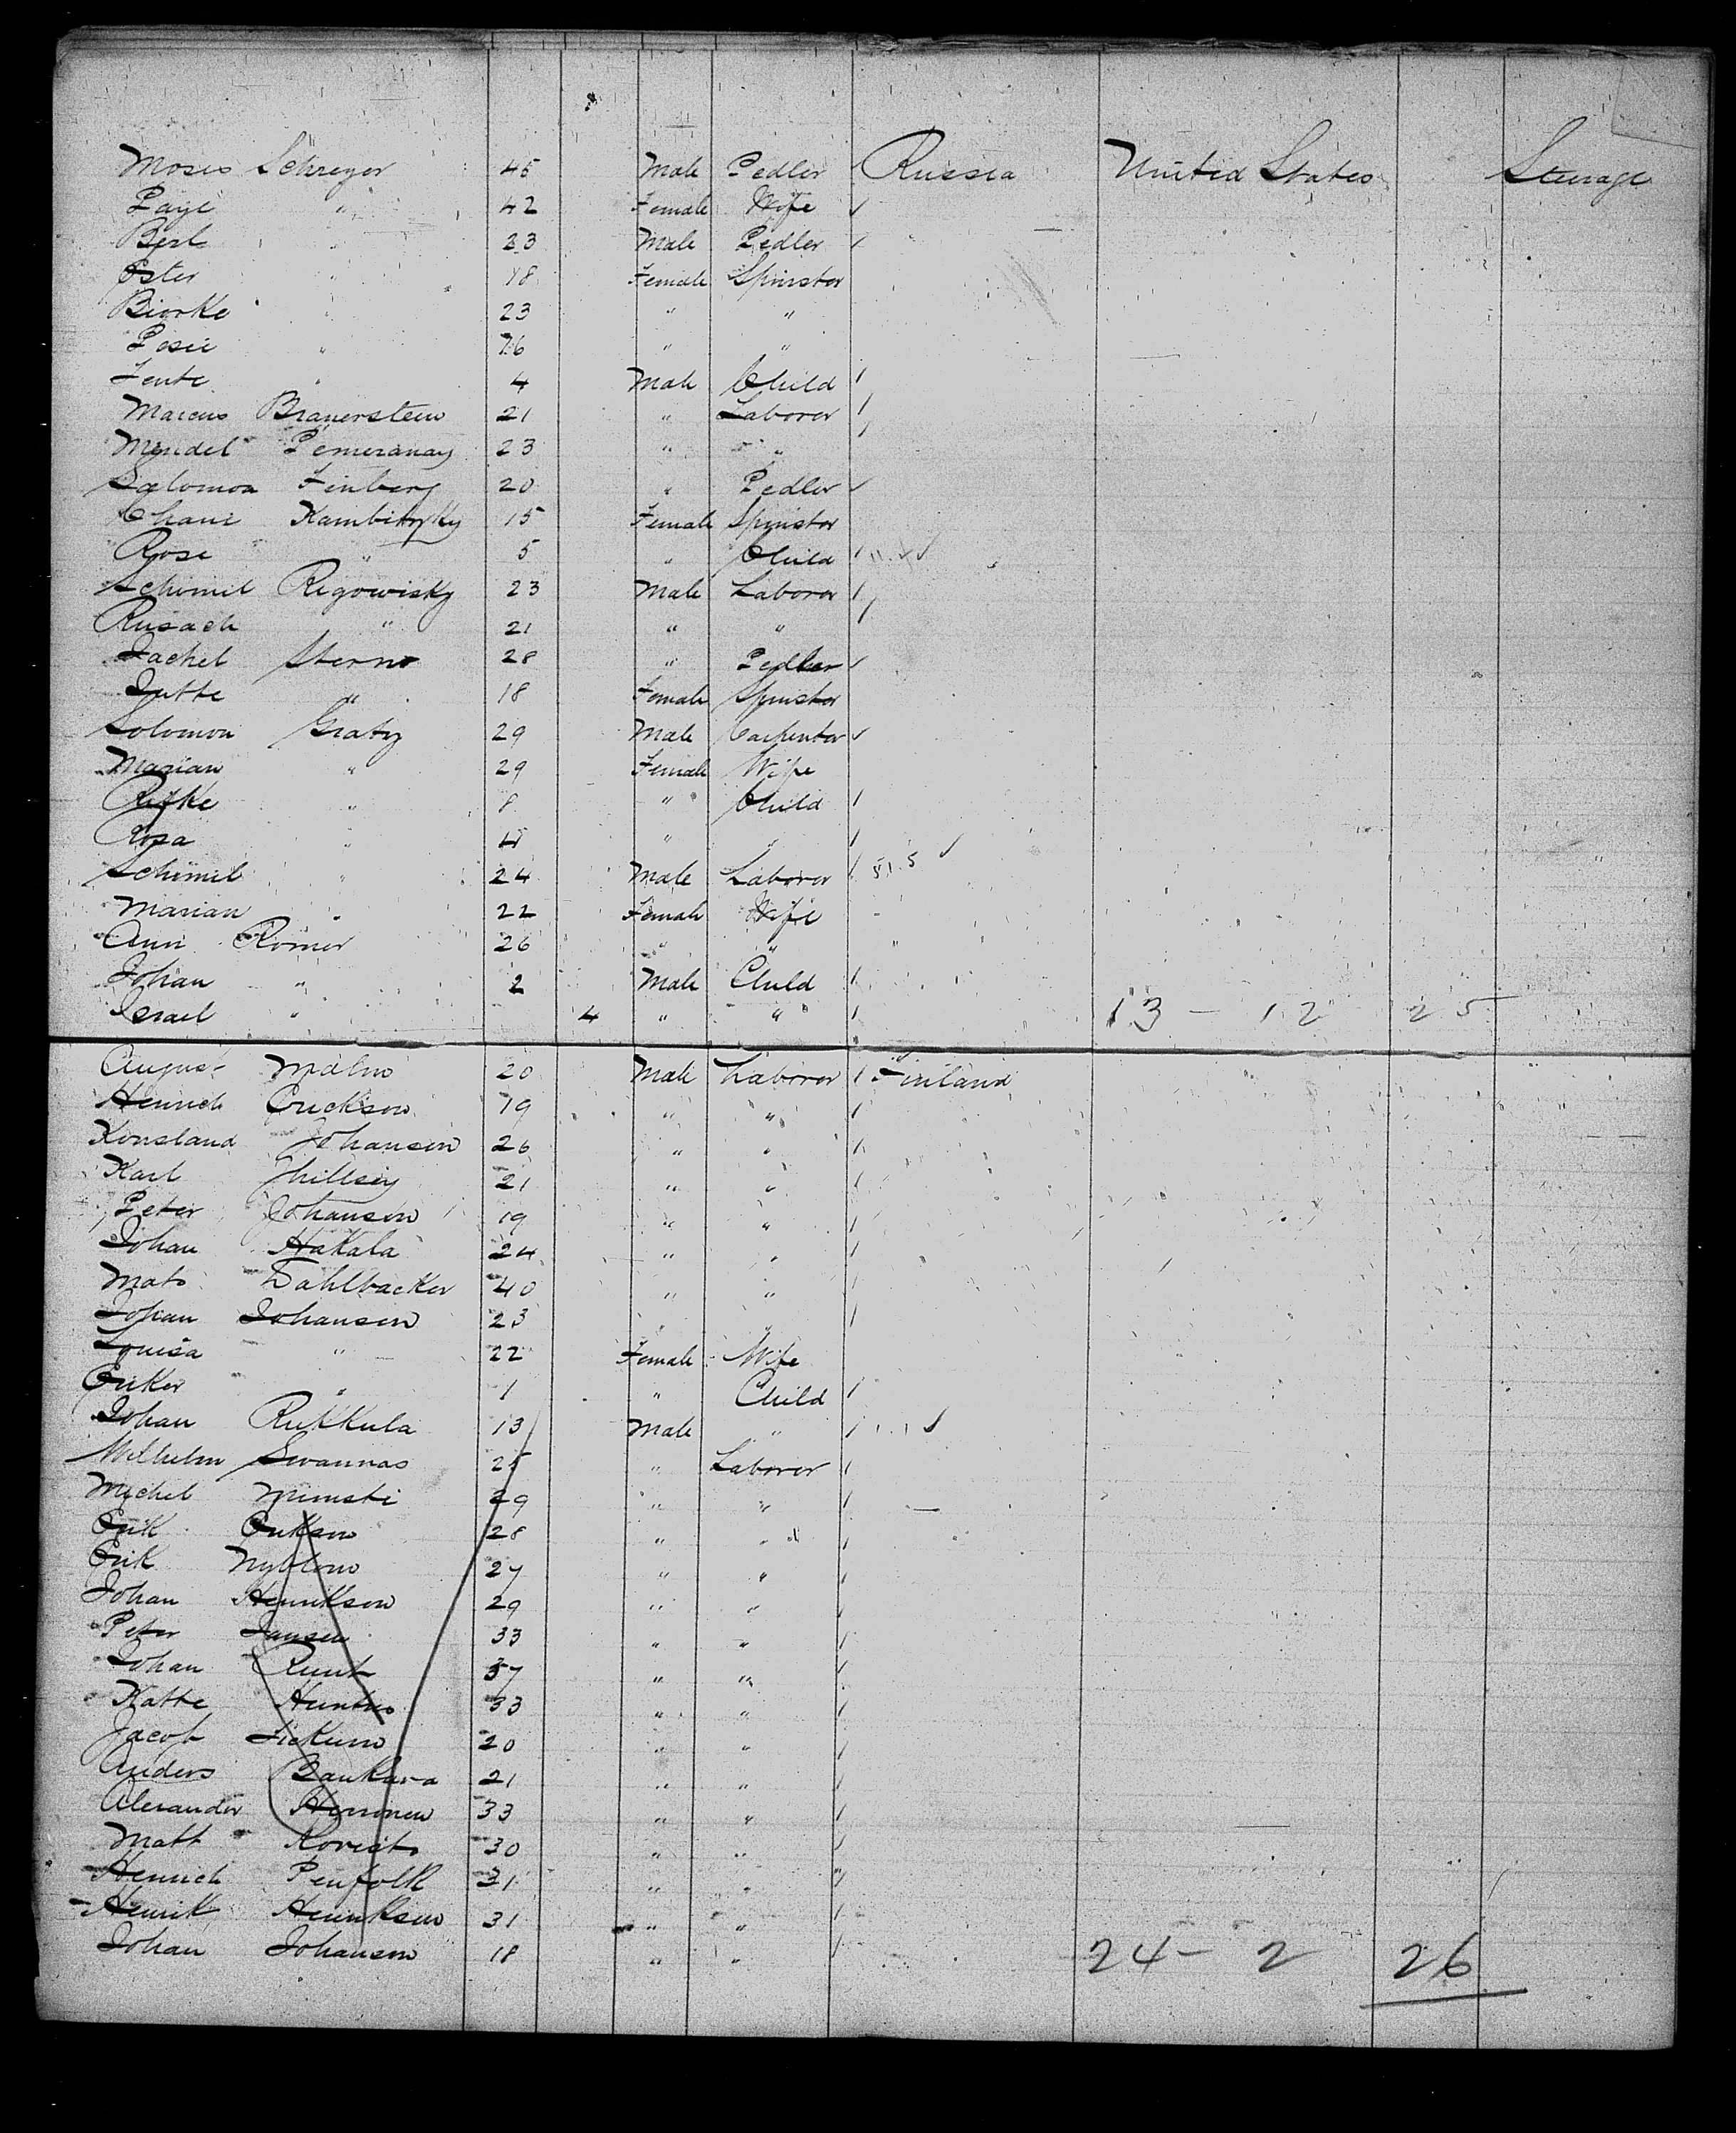 Moses Schreyer 45 Male Pedler Russia United States Steerage
Paye " 42 Female Wife
Berl " 23 Male Pedler
Ester " 18 Female Spinster
Biorke " 23 " "
Pesie " 16 " "
Jente " 4 Male Child
Marcus Brauerstein 21 " Laborer
Mendel Pemeranay 23 " "
Salomon Finberg 20 " Pedler
Chane 15 Female Spinster
Rose " 5 " Child
Schimil Regowisky 23 Male Laborer
Rusach " 21 " "
Jachel Stern 28 " Pedler
Jutte " 18 Female Spinster
Solomon Gratz 29 Male Carpenter
Marian " 29 Female Wife
Rifke " 8 " Child
Rosa " " "
Schimil " 24 Male Laborer
Marian " 22 Female Wife
Ann Romer 26 " "
Johan " 2 Male Child
Israel " 4 " " 13 - 12 25
August Malm 20 Male Laborer Finland
Henrich Erickson 19 " "
Konsland Johansen 26 " "
Karl 21 " "
Peter Johanson 19 " "
Johan Hakala 24 " "
Mats Dahlbacker 40 " "
Johan Johansen 23 " "
Louisa " 22 Female Wife
Eriker " 1 " Child
Johan Rukkula 13 Male "
Wilhelm Swannas 25 " Laborer
Michel 29 " "
Erik Erikson 28 " "
Erik Nyblom 27 " "
Johan Henrikson 29 " "
Peter Jansen 33 " "
Johan 37 " "
Katte 33 " "
Jacob 20 " "
Anders Bankara 21 " "
Alexander 33 " "
Matt 30 " "
Henrich Penfolk 31 " "
Henrik Henrikson 31 " "
Johan Johanson 18 " " 24 - 2 26